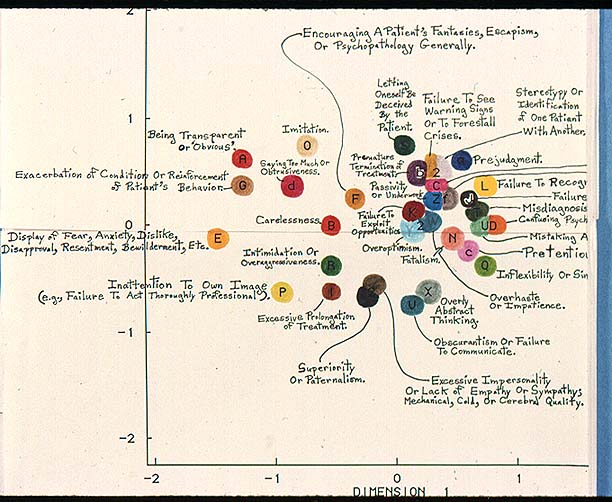 2
1
0
-1
-2
-2
-1
0
1
DIMENSION 1
Encouraging A Patient's Fantasies, Escapism,
Or Psychopathology Generally.
Letting
Oneself Be
Deceived
By the
Patient.
Failure To See
Warning Signs
Or To Forestall
Crises.
Stereotypy Or
Identification
of One Patient
With Another.
Being Transparent
or "Obvious".
A
Imitation.
O
Premature
Termination of
Treatment.
Prejudgment.
Exacerbation of Condition Or Reinforcement
of Patient's Behavior.
G
Saying Too Much Or
Obtrusiveness.
d
Passivity
or Underwork.
b
2
a
C
L
Failure To Recog
F
Z
f
J
Failure
Carelessness.
B
Failure To
Exploit
Opportunities.
K
Misdiagnosis
Confusing Psych
Display of Fear, Anxiety, Dislike,
Disapproval, Resentment, Bewilderment, Etc.
E
2
U
D
N
Mistaking A
Overoptimism.
Fatalism.
c
Pretentio
Intimidation Or
Overaggressiveness.
R
Q
Inflexibility Or Sin
Inattention To Own Image
(e.g., Failure To Act Thoroughly Professional).
P
I
X
U
Overhaste
or Impatience.
Excessive Prolongation
of Treatment.
Overly
Abstract
Thinking.
Obscurantism Or Failure
To Communicate.
Superiority
Or Paternalism.
Excessive Impersonality
Or Lack of Empathy Or Sympathy;
Mechanical, Cold, Or Cerebral Quality.